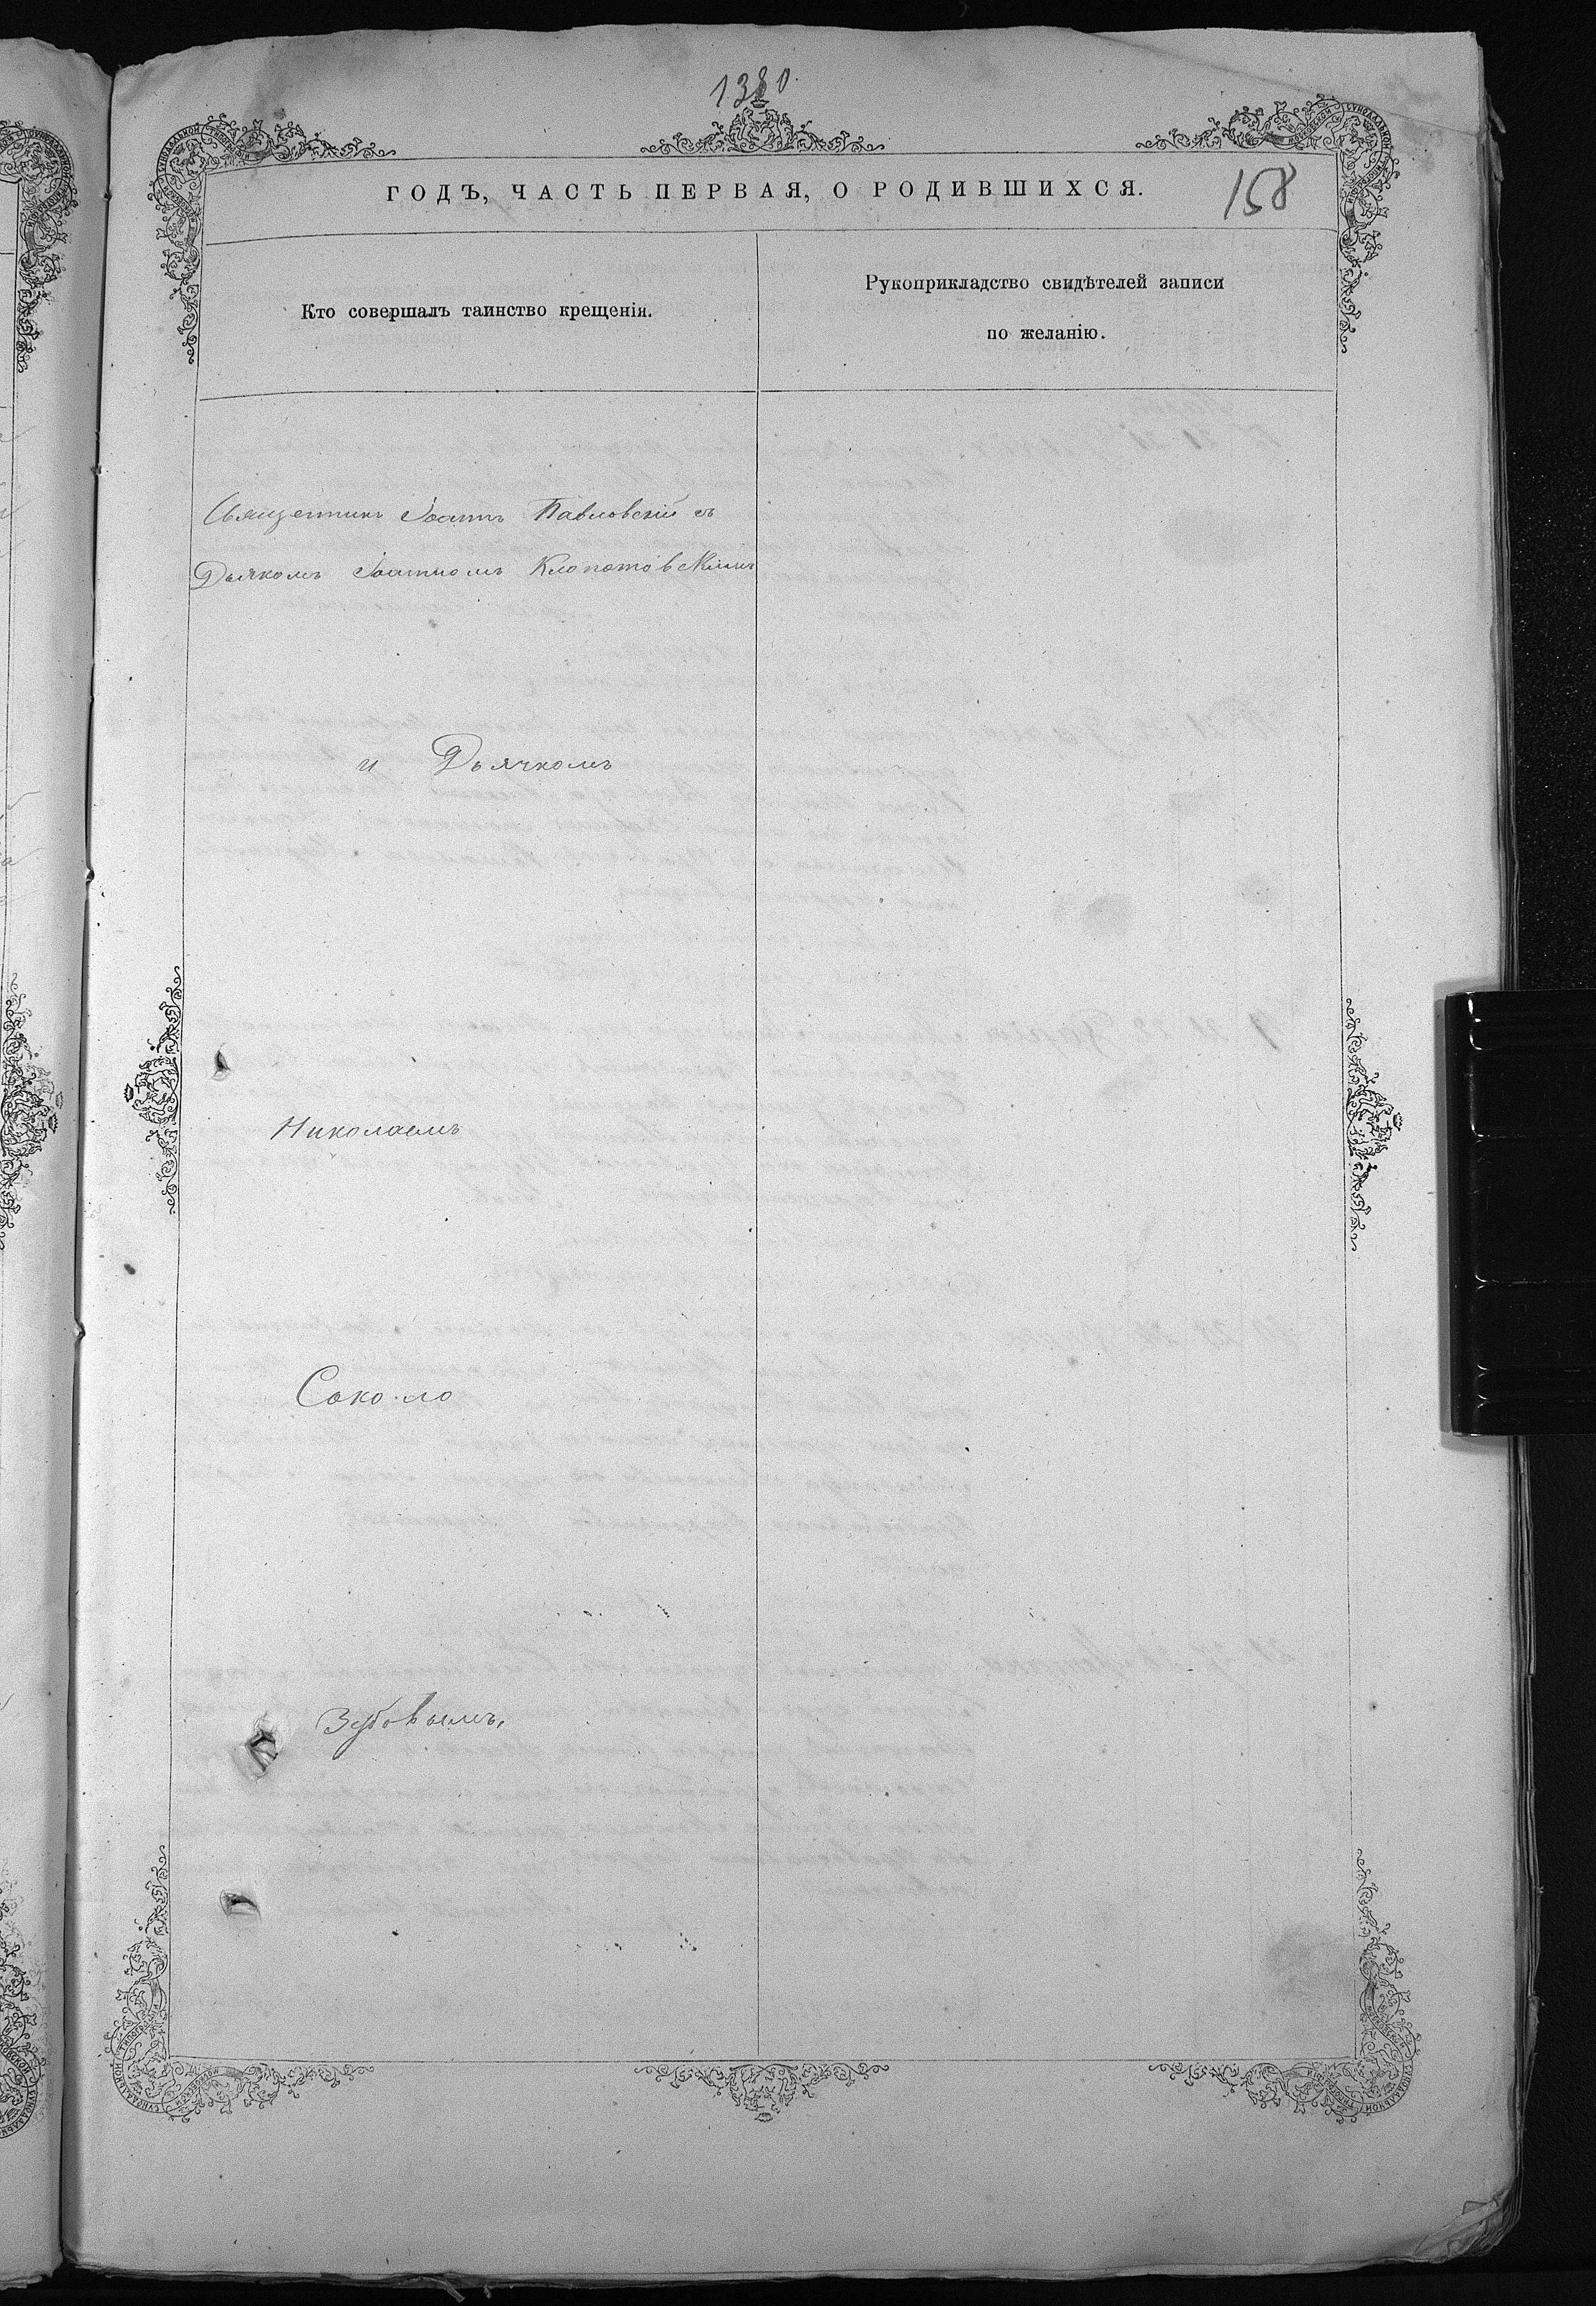 1380
ГОДЪ, ЧАСТЬ ПЕРВАЯ, О РОДИВШИХСЯ.
158
Кто совершалъ таинство крещенія.
Рукоприкладство свидѣтелей записи
по желанію.
Священникъ Іоаннъ Павловскій съ
Дьячкомъ Іоанномъ Клопотовскимъ
и Дьячкомъ
Николаемъ
Соколо
Зубовымъ,